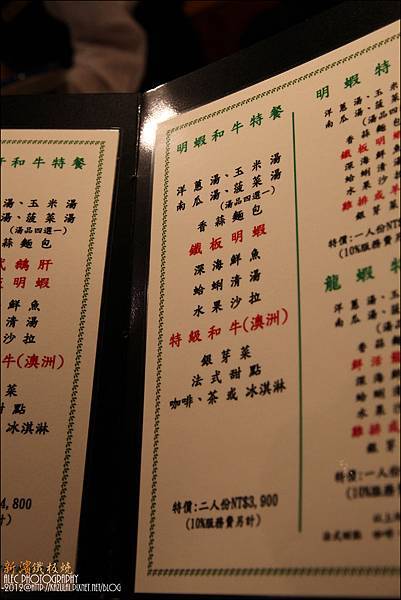 肝和牛特餐
湯、玉米湯
湯、菠菜湯
(湯品四選一)
蒜麵包
式鵝肝
板明蝦
鮮魚
清湯
沙拉
牛(澳洲)
菜
點
冰淇淋
4,800
計)
明蝦和牛特餐
洋蔥湯、玉米湯
南瓜湯、菠菜湯
(湯品四選一)
香蒜麵包
鐵板明蝦
深海鮮魚
蛤蜊清湯
水果沙拉
特級和牛(澳洲)
銀芽菜
法式甜點
咖啡、茶或冰淇淋
特價:二人份NT$3,900
(10%服務費另計)
明蝦特
洋蔥湯、玉米
南瓜湯、菠菜
(湯品
香蒜麵
鐵板明
深海鮮
蛤蜊清
水果沙
雞排或羊
銀芽菜
特價:一人份
(10%服務費
龍蝦特
洋蔥湯、玉
南瓜湯、菠
(湯
香蒜
鮮活龍
深海
蛤蜊
水果
雞排或
銀芽
特價:一人份
(10%服務
以上
法式甜點 咖啡
新濱鐵板燒
ALEC PHOTOGRAPHY
-2012@HTTP://KAZULAI.PIXNET.NET/BLOG